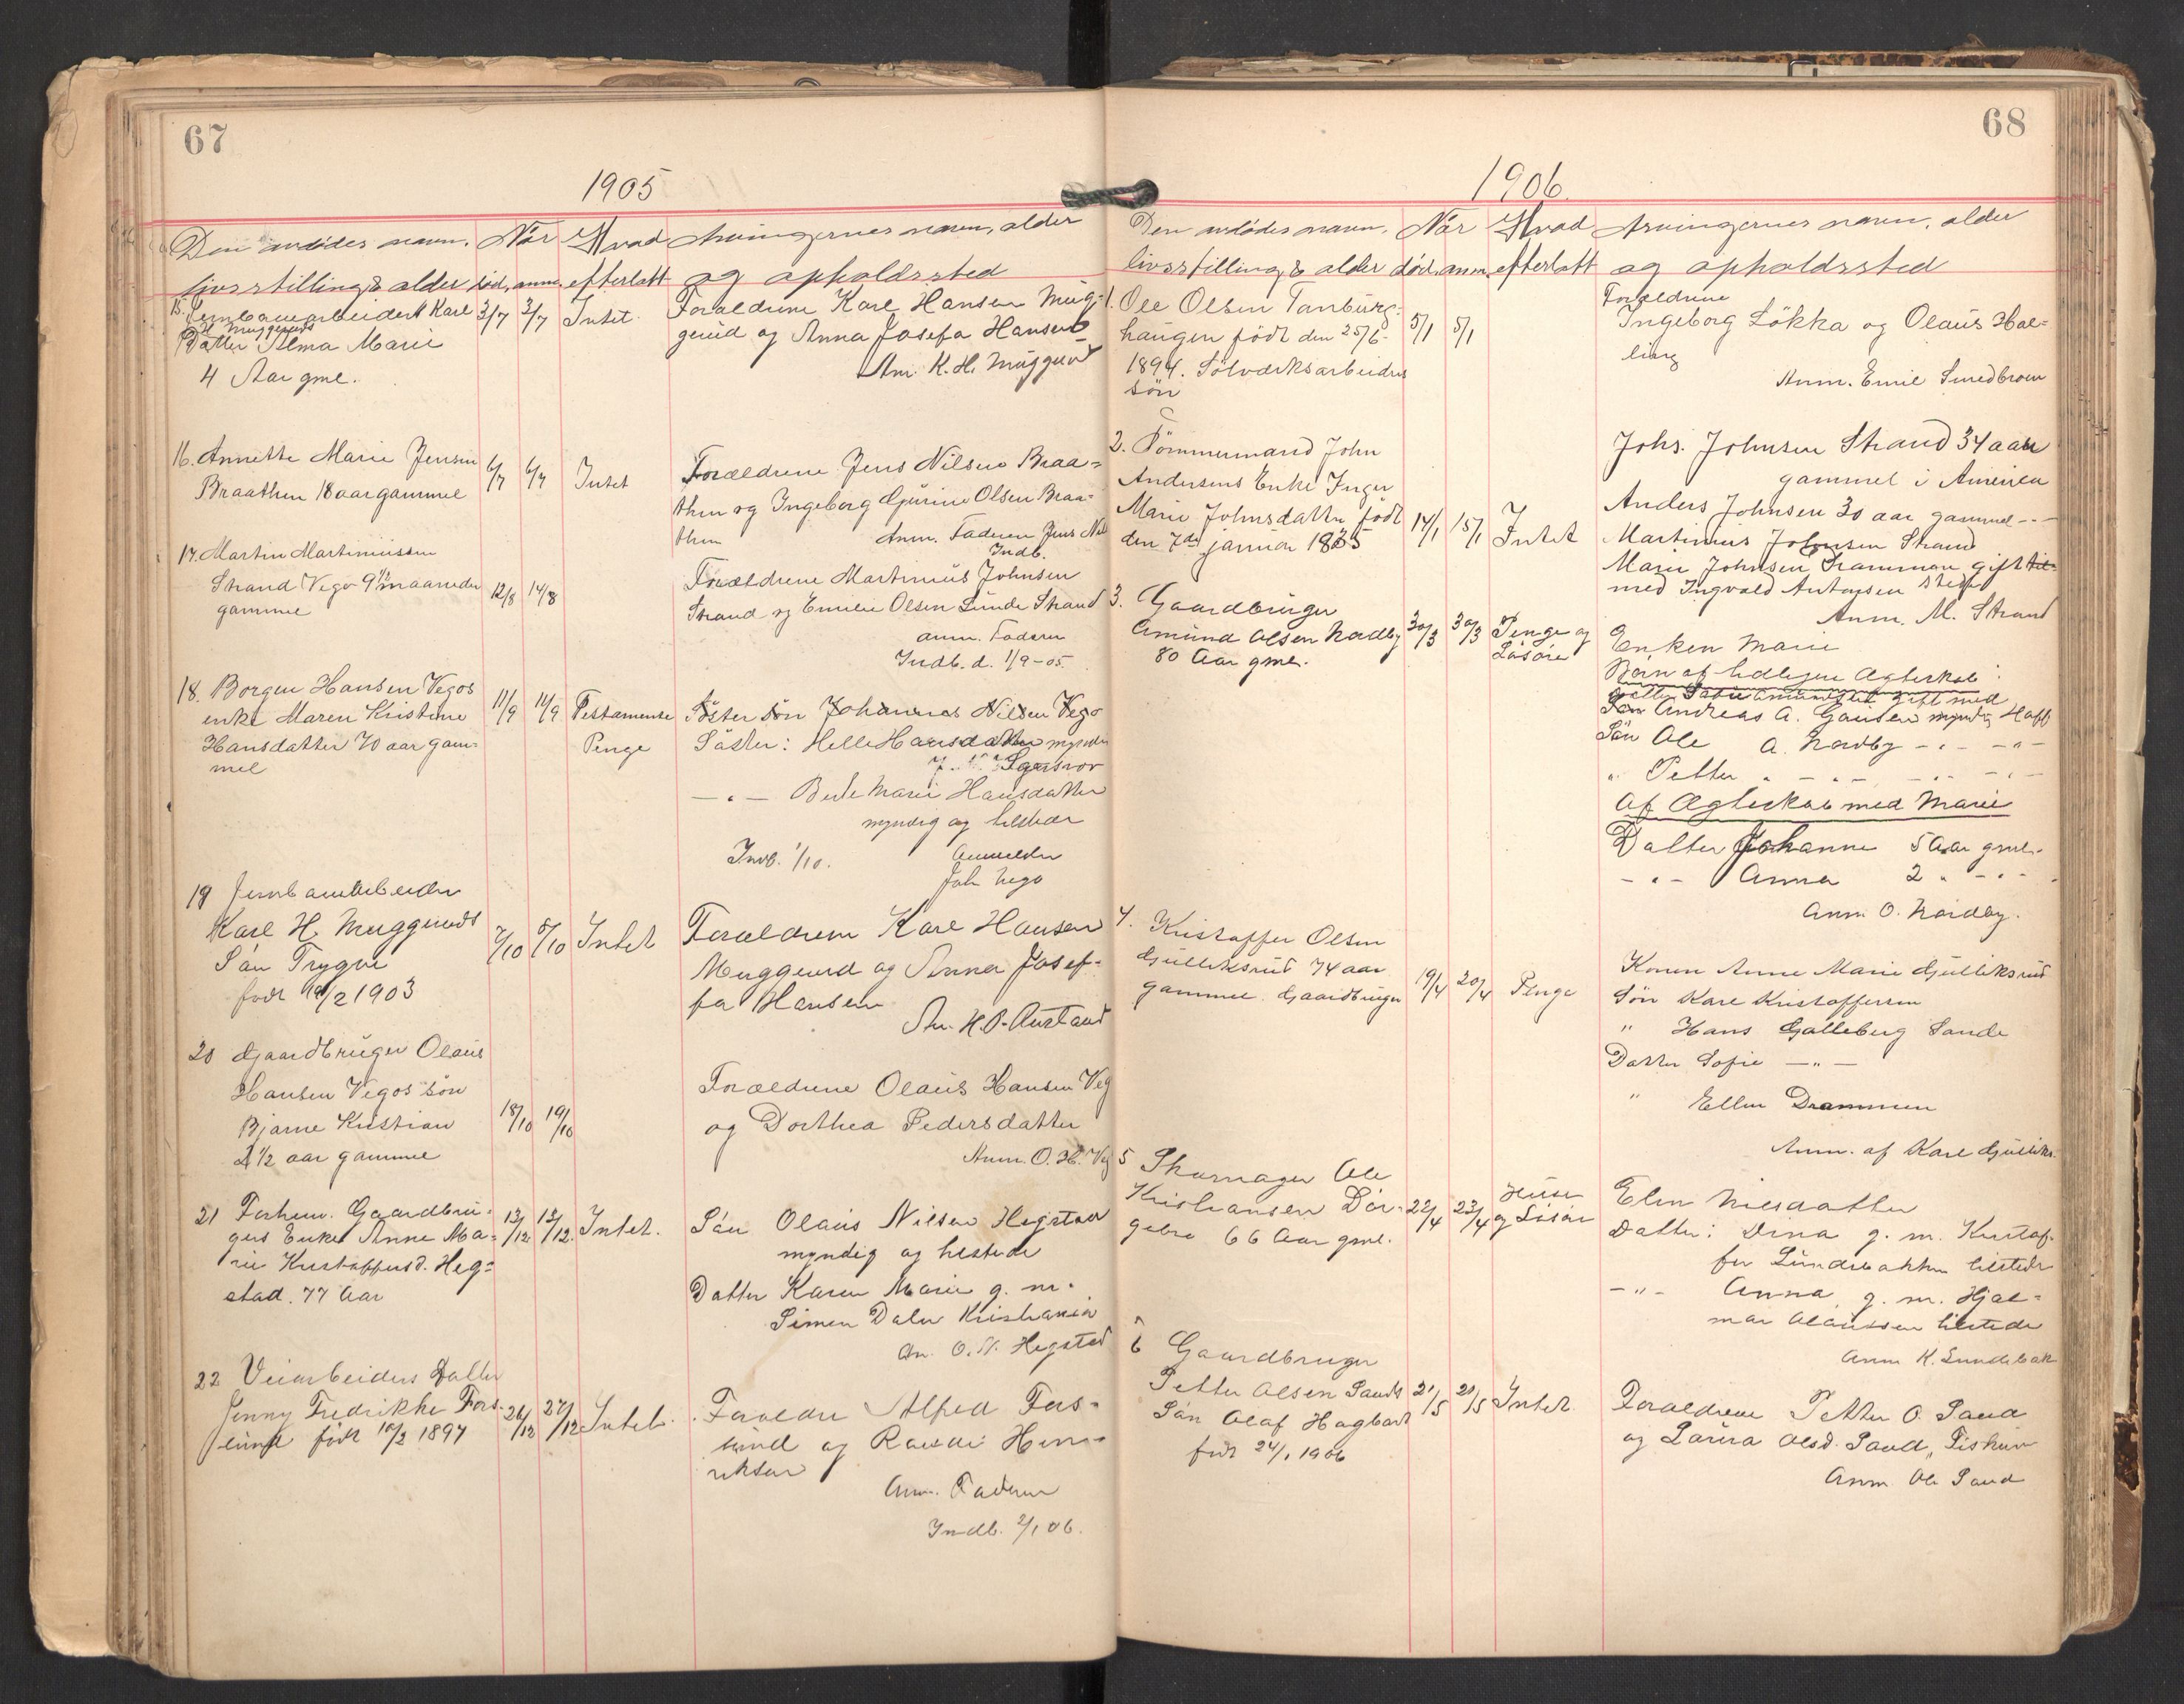 67
1905
Den avdødes navn, Når Hvad Arvingernes navn, alder
livsstilling & alder død, anm. efterlatt og opholdssted
15. Jernbanearbeider Karl 3/7 3/7 Intet. Forældrene Karl Hansen Mug-
H. Muggeruds
Datter Alma Marie gerud og Anna Josefa Hansen
4 Aar gml. Am. K. H. Muggerud
16. Annette Marie Jensen 6/7 6/7 Intet Forældrene Jens Nilsen Braa-
Braathen 18 aar gammel then og Ingeborg Gurine Olsen Braa-
then Anm. Faderen Jens Nils
Indb.
17. Martin Martiniussen Forældrene Martinius Johnsen
Strand Vego 9 1/2 maaneder 12/8 14/8 Strand og Emilie Olsen Lunde Strand
gammel
anm. Faderen
Indb. d. 1/9-05.
18. Borgen Hansen Vegos 11/9 11/9 Testamente Söster sön Johannes Nilsen Vego
enke Maren Kristine Penge Söster: Helle Hansdatter myndig
Hansdatter 70 aar gam-
mel
—"— Berte Marie Hansdatter
myndig og tilstede
Indb. 1/10. Anmelder
Joh Vego
19 Jernbanearbeider
Karl H. Muggeruds 7/10 8/10 Intet Forældrene Karl Hansen
Sön Trygve Muggerud og Anna Josef-
født 19/2 1903 fa Hansen
An. H. O. Austad
20 Gaardbruger Olaus
Hansen Vegos sön Forældrene Olaus Hansen Veg
Bjarne Kristian 18/10 19/10 og Dorthea Pedersdatter
2 1/2 aar gammel Anm. O. H. Veg
21 Forhen. Gaardbru- 13/12 13/12 Intet. Sön Olaus Nilsen Hegstad
gers Enke Anne Ma- myndig og tilstede
rie Kristoffersd. Heg- Datter Karen Marie g. m.
stad. 77 Aar Simen Dalen Kristiania
An. O. N. Hegstad
22 Veiarbeiders Datter
Jenny Fredrikke Fors- 26/12 27/12 Intet. Forældre Alfred Fors-
lund født 10/2 1897 lund og Hen-
riksen
Anm. Faderen
Indb. 2/1 06.
68
1906.
Den avdødes navn, Når Hvad Arvingernes navn, alder
livsstilling & alder død, anm. efterlatt og opholdssted
1. Ole Olsen Tanburg- 5/1 5/1 Forældrene
haugen født den 25/6- Ingeborg Lökka og Olaus Hol-
1894. Sölvverksarbeiders
sön
Anm. Emil Smedbroen
2. Tömmermand John Johs. Johnsen Strand 34 aar
Andersens Enke Inger gammel i Amerika
Marie Johnsdatter født 14/1 15/1 Intet Anders Johnsen 30 aar gammel -"-
den 7de januar 1835 Martinius Johnsen Strand
Marie Johnsen Drammen gift til-
med Ingvald Antonsen stede
Anm. M. Strand
3. Gaardbruger
Amund Olsen Nordby 30/3 30/3 Penge og Enken Marie
80 Aar gml. Lösöre Börn af tidligere Ægteskab:
Datter gift med
Andreas A. Gausen myndig Hoff
Sön Ole A. Nordby -"- -"-
" Petter " -"- -"- -"-
Af Ægteskab med Marie
Datter Johanne 5 Aar gml.
-"- Anna 2 " -"-
Anm O. Nordby.
4. Kristoffer Olsen
Gulliksrud 74 aar 19/4 20/4 Penge Konen Anne Marie Gulliksrud
gammel. Gaardbruger Sön Karl Kristoffersen
" Hans Galleberg Sande
Datter Sofie —"—
" Ellen Drammen
Anm. af Karl Gulliks.
5 Skomager Ole
Kristiansen Dör- 22/4 23/4 Huse og Lösöre Elen Nilsdatter
gebro 66 Aar gml. Datter: Dina g. m. Kristof-
fer Lundebakken tilstede
-"- Anna g. m. Hjal-
mar Olaussen tilstede
Anm K. Lundebak
6 Gaardbruger
Petter Olsen Sands 21/5 21/5 Intet. Forældrene Petter O. Sand
Sön Olaf Hagbart og Laura Olsd. Sand,
født 24/1 1906
Anm. Ole Sand